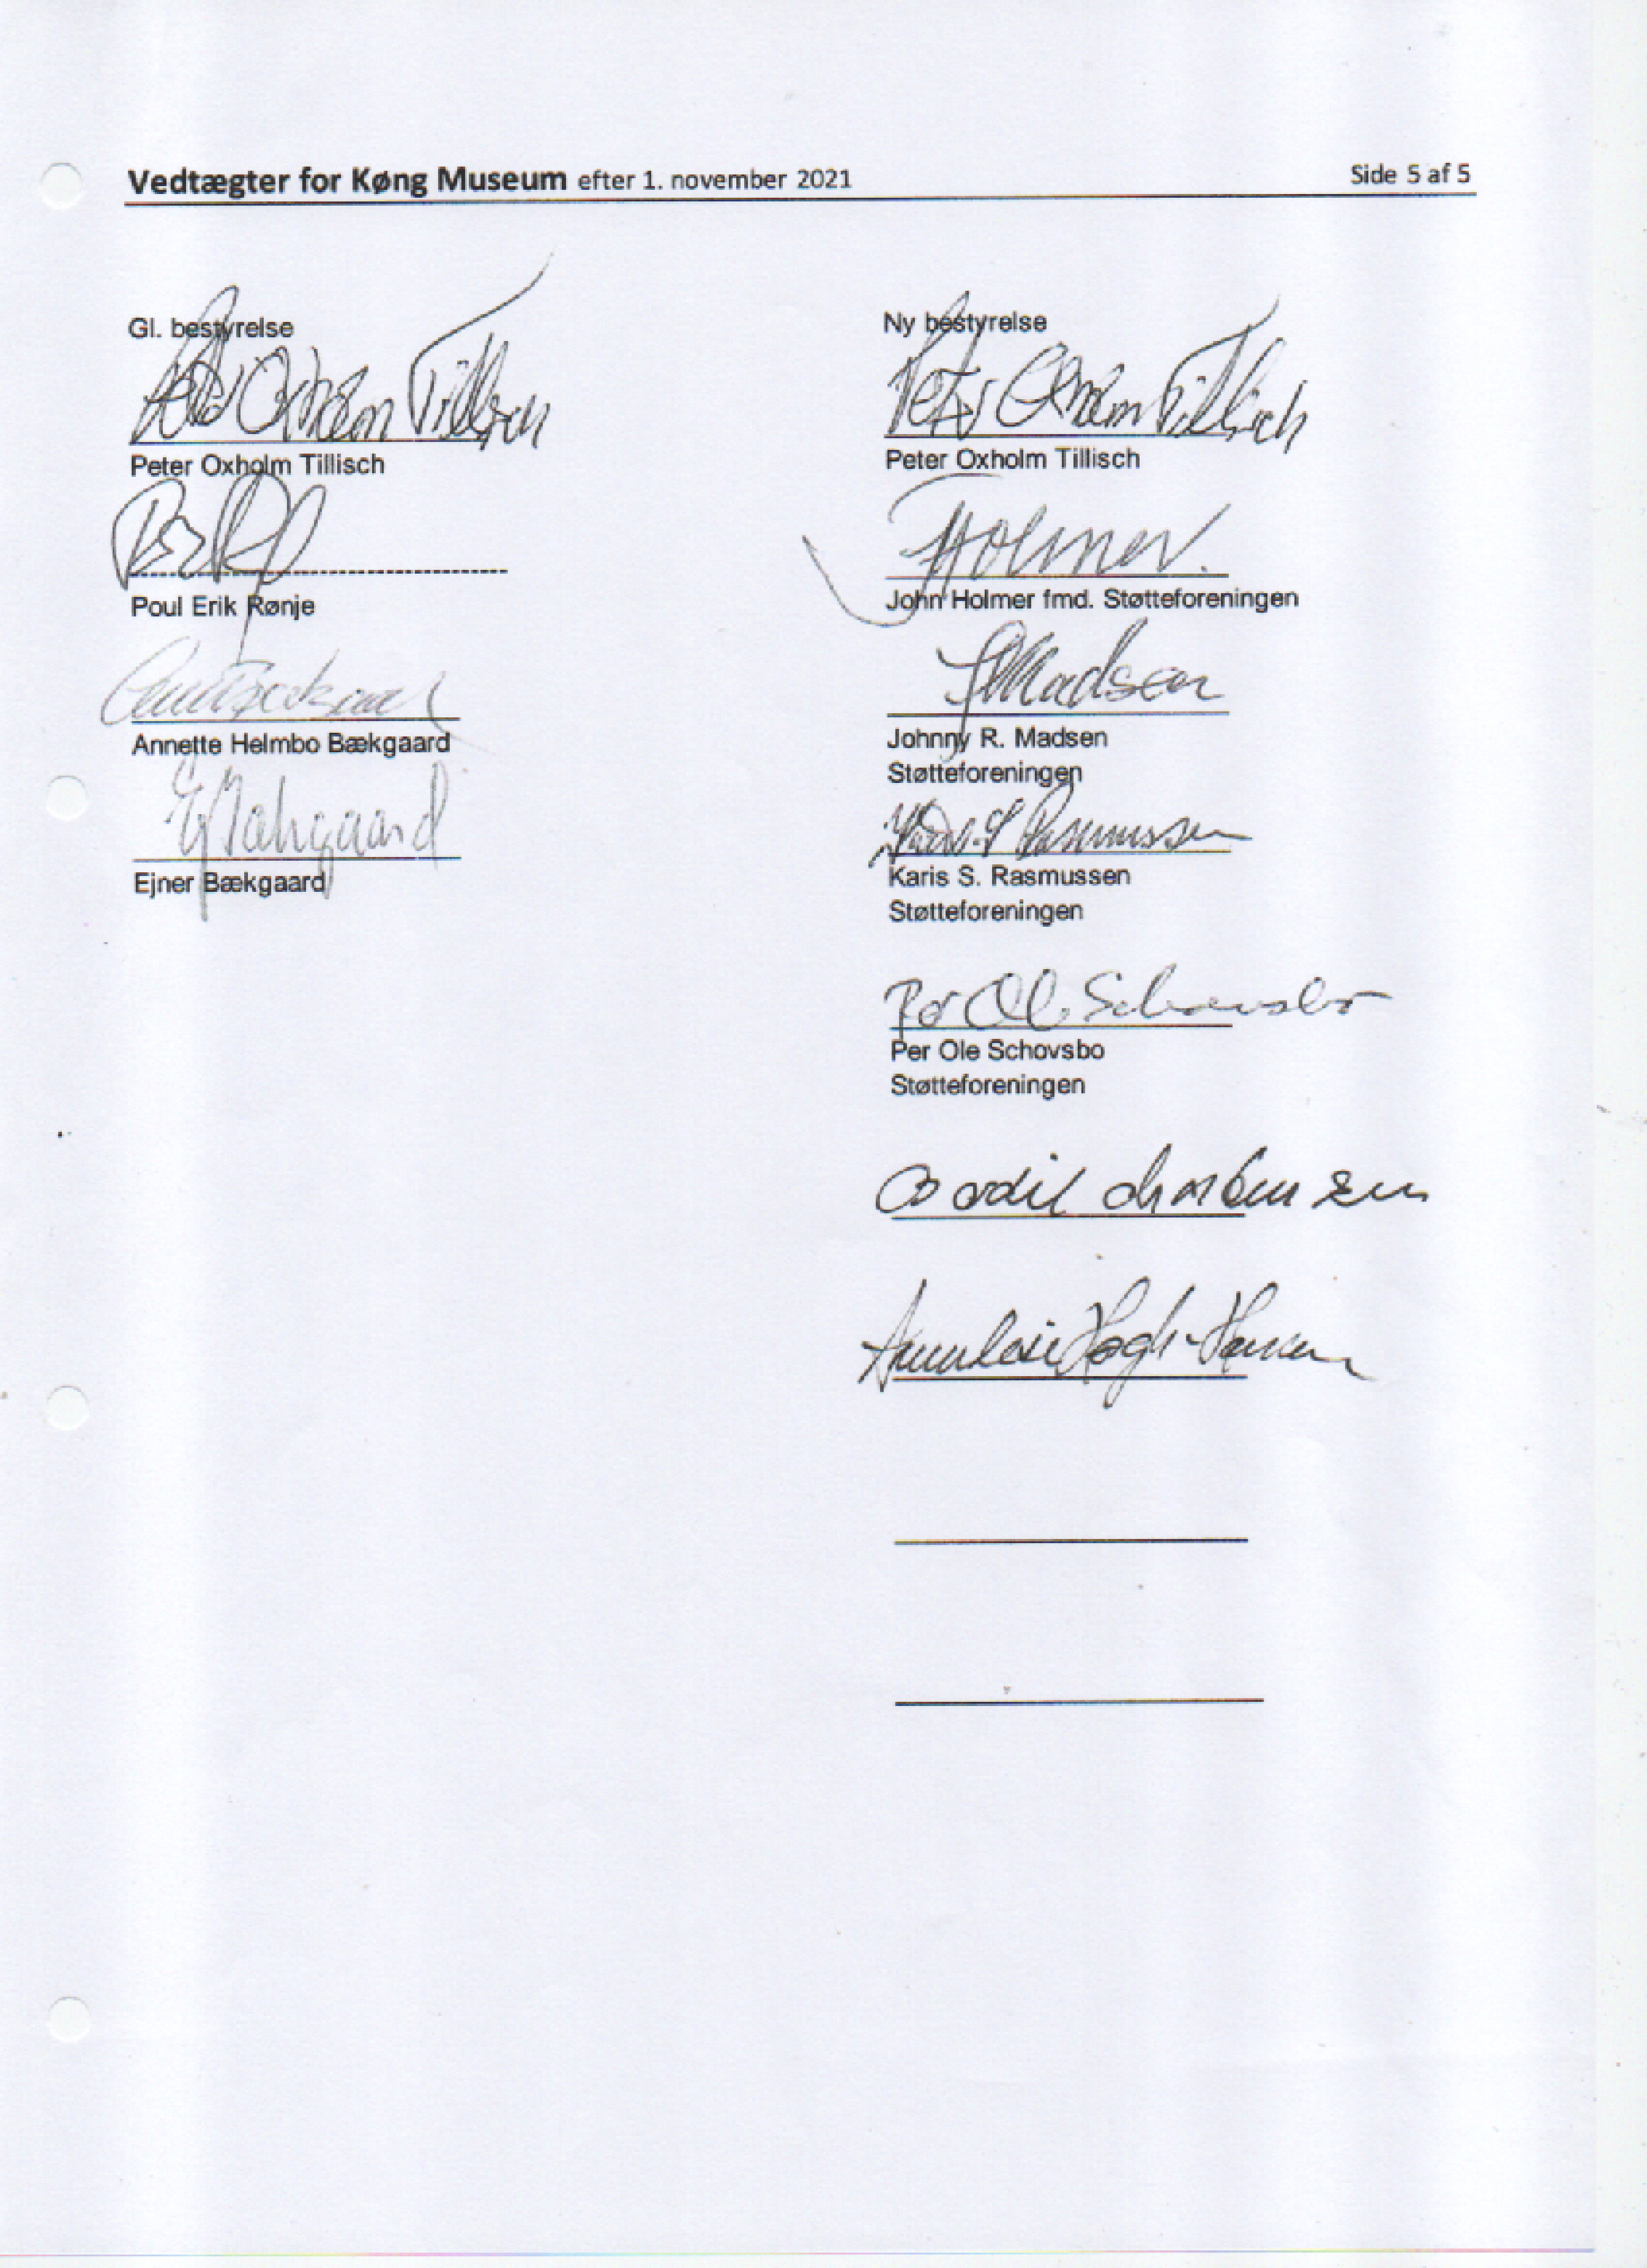 Vedtægter for Køng Museum efter 1. november 2021 Side 5 af 5
Gl. bestyrelse
Peter Oxholm Tillisch
Peter Oxholm Tillisch
Poul Erik Rønje
Annette Helmbo Bækgaard
Ejner Bækgaard
Ny bestyrelse
Peter Oxholm Tillisch
Peter Oxholm Tillisch
Holmer.
John Holmer fmd. Støtteforeningen
Madsen
Johnny R. Madsen
Støtteforeningen
Karis S Rasmussen
Karis S. Rasmussen
Støtteforeningen
Per Ole Schovsbo
Per Ole Schovsbo
Støtteforeningen
Bodil
Høgh-Hansen